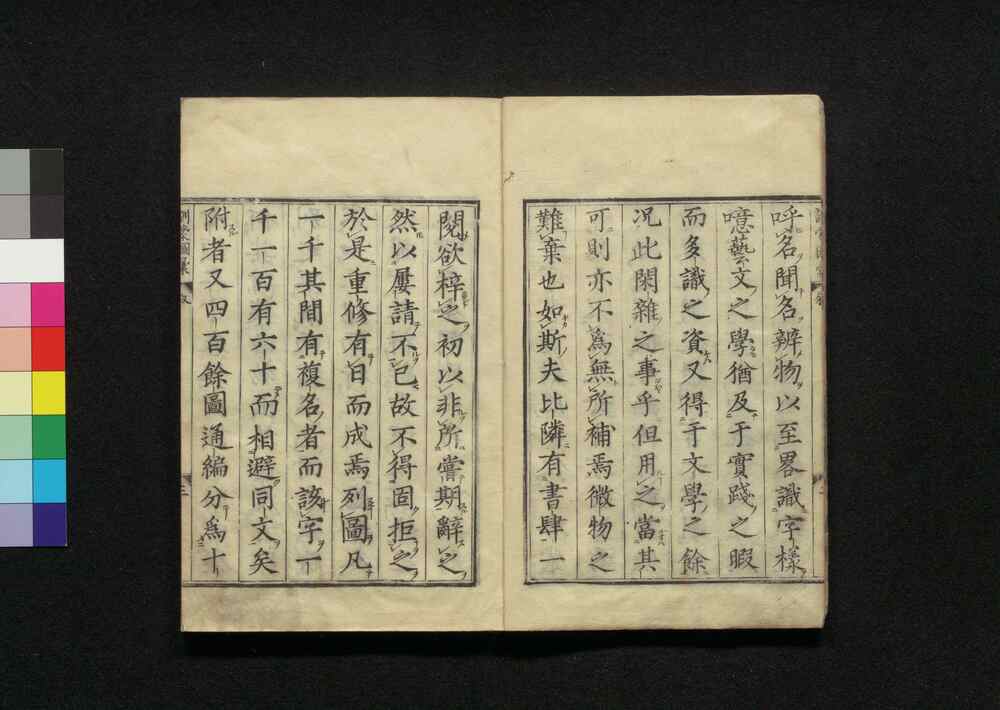 呼名聞名辨物以至畧識字樣
噫藝文之學猶及于實踐之暇
而多識之資又得于文學之餘
况此閑雜之事乎但用之當其
可則亦不爲無所補焉微物之
難棄也如斯夫比隣有書肆一
閱欲梓之初以非所嘗期辭之
然以屢請不已故不得固拒之
於是重修有日而成焉列圖凡
一千其間有複名者而該字一
千一百有六十而相避同文矣
附者又四百餘圖通編分爲十